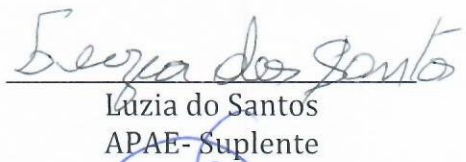 Luzia dos Santos
Luzia do Santos
APAE- Suplente